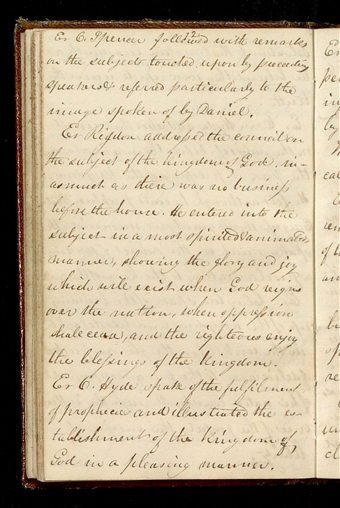 12
Er O. Spencer followed with remarks
on the subjects touched upon by preceding
speakers & refered particularly to the
image spoken of by Daniel.
Er Rigdon addressed the council on
the subject of the kingdom of God, in-
asmuch as there was no business
before the house. He entered into the
subject in a most spirited & animated
manner, showing the glory and joy
which will exist when God reigns
over the nation, when oppression
shall cease, and the righteous enjoy
the blessings of the kingdom.
Er O. Hyde spake of the fulfilment
of prophecie and illustrated the es-
tablishment of the kingdom of
God in a pleasing manner.